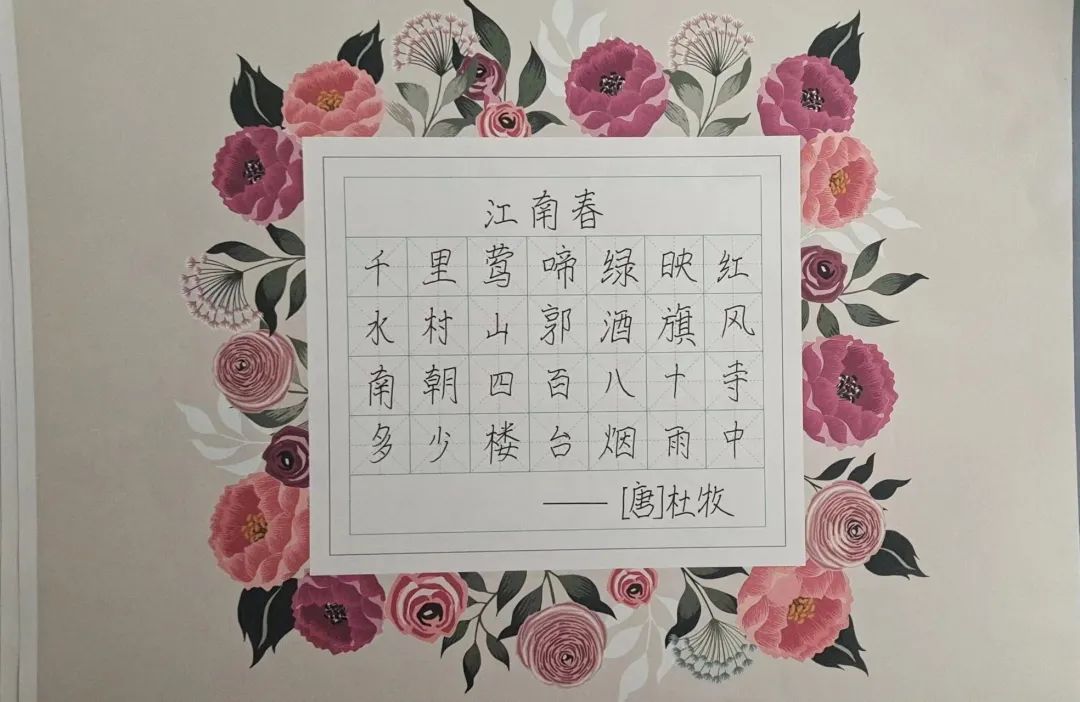 江南春
千里莺啼绿映红
水村山郭酒旗风
南朝四百八十寺
多少楼台烟雨中
——[唐]杜牧